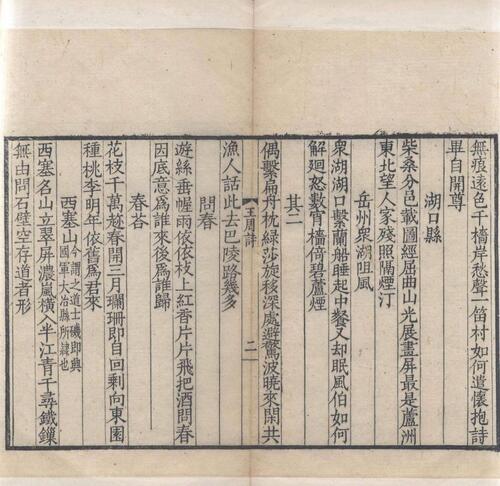 無痕遠色千檣岸愁聲一笛村如何遣懷抱詩
畢自開尊
湖口縣
柴桑分邑載圖經屈曲山光展畫屏最是蘆洲
東北望人家殘照隔煙汀
岳州衆湖阻風
衆湖湖口繫蘭船睡起中餐又却眠風伯如何
解迴怒數宵檣倚碧蘆煙
其二
偶繫扁舟枕綠莎旋移深處避驚波曉來閑共
漁人話此去巴陵路幾多
王周詩
二
問春
遊絲垂幄雨依依枝上紅香片片飛把酒問春
因底意爲誰來後爲誰歸
春荅
花枝千萬趂春開三月瓓珊即自回剩向東園
種桃李明年依舊爲君來
西塞山今謂之道士磯即興國軍大冶縣所隷也
西塞名山立翠屏濃嵐橫入半江青千尋鐵鏁
無由問石壁空存道者形